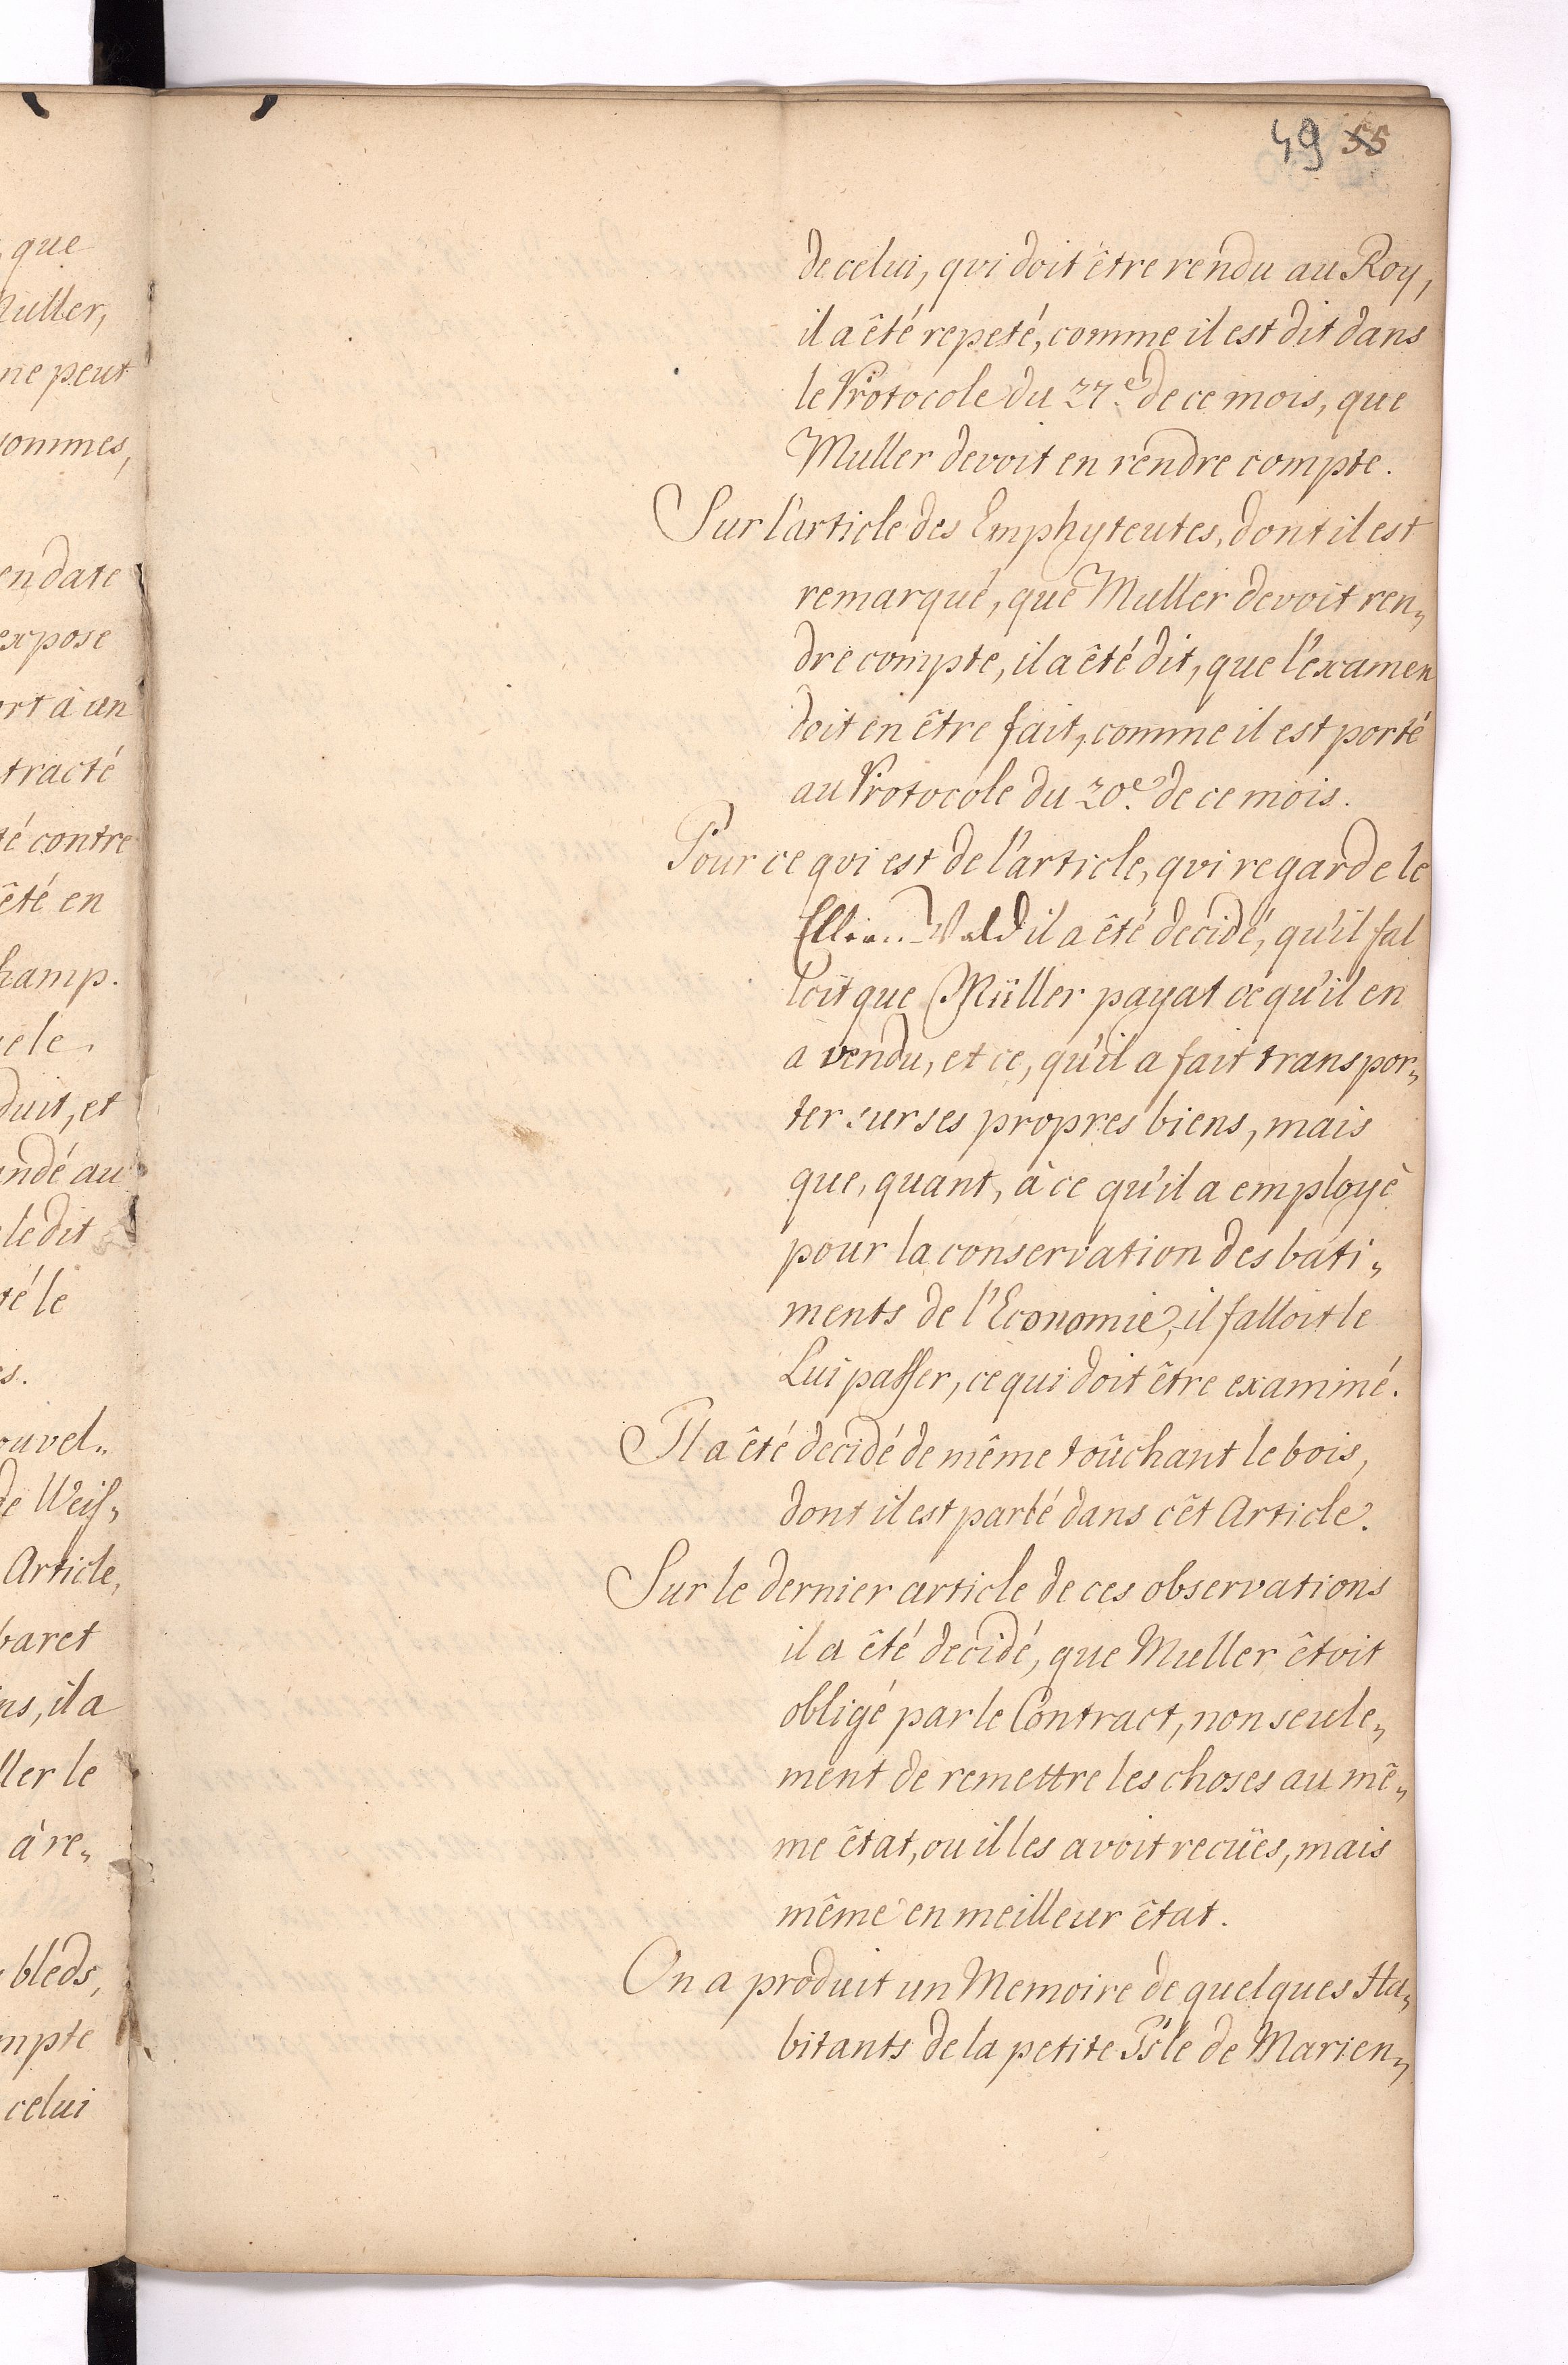 que
Muller,
ne peut
sommes,
en date
expose
ort à un
tracté
té contre
êté en
hamp.
ele
duit, et
andé au
ledit
té le
s.
ouvel„
de Weis„
Article,
baret
ns, il a
ller le
à re„
bleds,
mpte
celui
49 55
de celui, qui doit être rendu au Roy,
il a êté repeté, comme il est dit dans
le Protocole du 27.e de ce mois, que
Muller devoit en rendre compte.
Sur l'article des Emphyteutes, dont il est
remarqué, que Muller devoit ren„
dre compte, il a êté dit, que l'examen
doit en être fait, comme il est porté
au Protocole du 20.e de ce mois.
Pour ce qui est de l'article, qui regarde le
Wald il a êté decidé, qu'il fal
loit que Müller payat ce qu'il en
a vendu, et ce, qu'il a fait transpor„
ter sur ses propres biens, mais
que, quant, à ce qu'il a employé
pour la conservation des bati„
ments de l'Economie, il falloit le
Lui passer, ce qui doit être examiné.
Il a êté decidé de même toûchant le bois,
dont il est parlé dans cêt Article.
Sur le dernier article de ces observations
il a êté decidé, que Muller êtoit
obligé par le Contract, non seule„
ment de remettre les choses au mê„
me êtat, ou il les avoit recuës, mais
même en meilleur êtat.
On a produit un Memoire de quelques Ha„
bitants de la petite Isle de Marien„